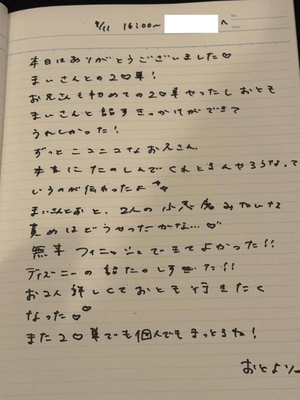 9/11 16:00〜 へ
本日はありがとうございました♡
まいさんとの2〇単!
お兄さんも初めての2〇単やったしおとも
まいさんと話すきっかけができて
うれしかった!
ずっとニコニコなお兄さん。
本当にたのしんでくれとるんやろうなって
いうのが伝わったよ
まいさんとおと、2人の小悪魔みたいな
責めはどうやったかな...♡
無事フィニッシュできてよかった!!
ディズニーの話たのしすぎた!!
お2人詳しくておとも行きたく
なった
また2〇単でも個人でもまっとるね!
おとより